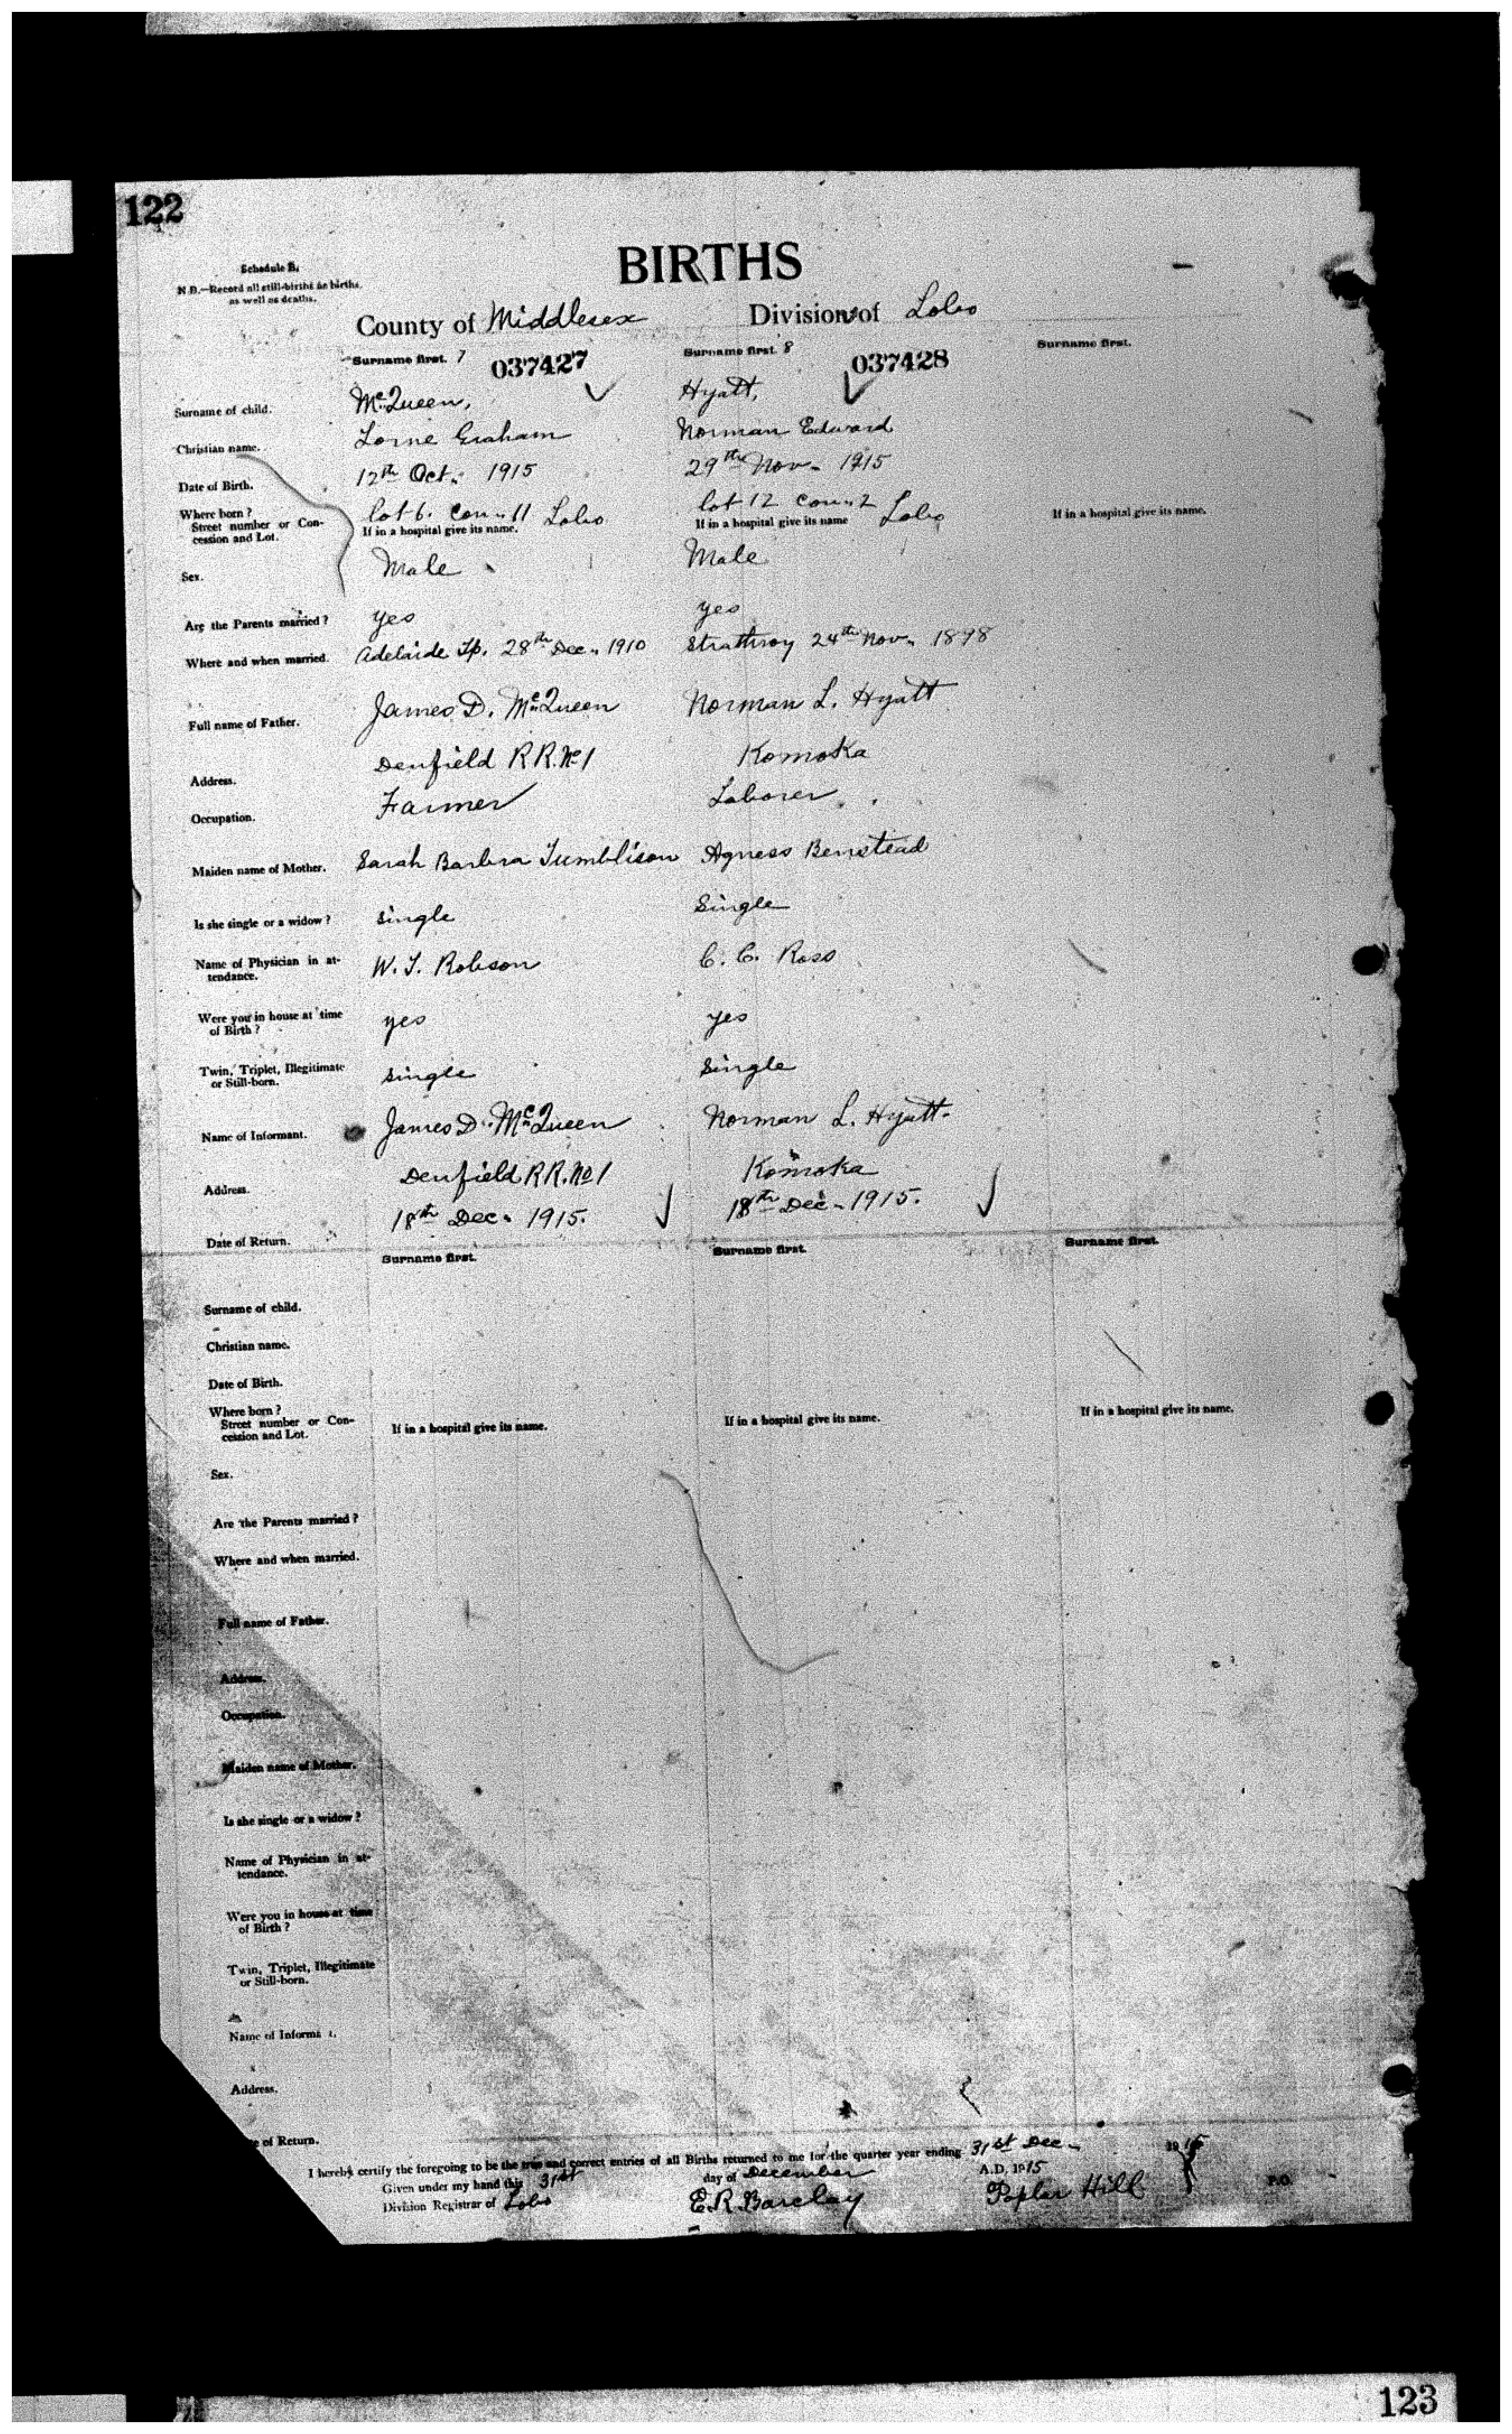 122
Schedule B.
N.B.—Record all still-births as births,
as well as deaths.
BIRTHS
County of Middlesex Division of Lobo
Surname first. 7 037427 Surname first. 8 037428 Surname first.
Surname of child. McQueen, Hyatt,
Christian name. Lorne Graham Norman Edward
Date of Birth. 12th Oct. 1915 29th Nov. 1915
Where born? lot 6. Con. 11 Lobo lot 12 Con. 2 Lobo
Street number or Con- If in a hospital give its name. If in a hospital give its name If in a hospital give its name.
cession and Lot.
Sex. Male Male
Are the Parents married? yes yes
Where and when married. Adelaide Tp. 28th Dec. 1910 Strathroy 24th Nov. 1898
Full name of Father. James D. McQueen Norman L. Hyatt
Address. Denfield R R. No 1 Komoka
Occupation. Farmer Laborer
Maiden name of Mother. Sarah Barbra Tumblison Agness Benstead
Is she single or a widow? single Single
Name of Physician in at- W. J. Robson C. C. Ross
tendance.
Were you in house at time yes yes
of Birth?
Twin, Triplet, Illegitimate single Single
or Still-born.
Name of Informant. James D. McQueen Norman L. Hyatt.
Address. Denfield R R. No 1 Komoka
Date of Return. 18th Dec. 1915. 18th Dec. 1915.
Surname first. Surname first. Surname first.
Surname of child.
Christian name.
Date of Birth.
Where born?
Street number or Con- If in a hospital give its name. If in a hospital give its name. If in a hospital give its name.
cession and Lot.
Sex.
Are the Parents married?
Where and when married.
Full name of Father.
Address.
Occupation.
Maiden name of Mother.
Is she single or a widow?
Name of Physician in at-
tendance.
Were you in house at time
of Birth?
Twin, Triplet, Illegitimate
or Still-born.
Name of Informa t.
Address.
e of Return.
I hereby certify the foregoing to be the true and correct entries of all Births returned to me for the quarter year ending 31st Dec. 1915
Given under my hand this 31st day of December A.D. 1915
Division Registrar of Lobo E. R. Barclay Poplar Hill P.O.
123